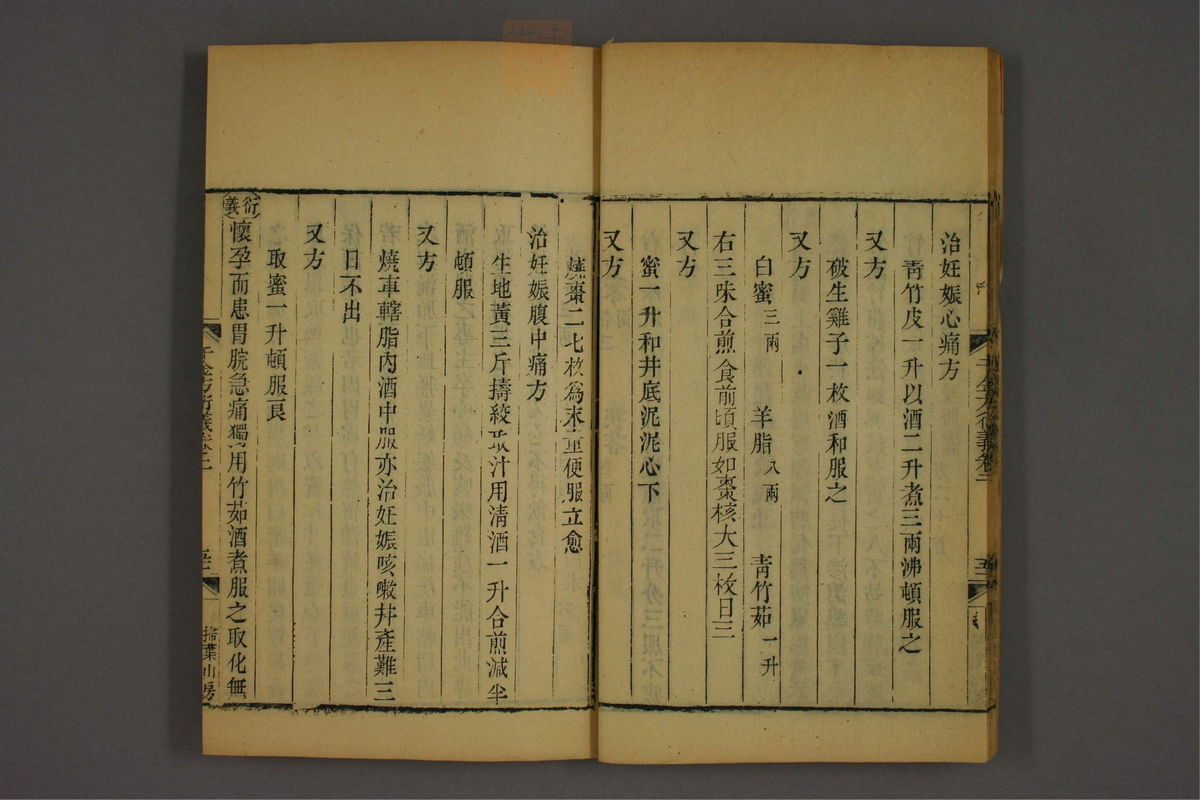 治妊娠心痛方
青竹皮一升以酒二升煮三兩沸頓服之
又方
破生雞子一枚酒和服之
又方
白蜜三兩 羊脂八兩 青竹茹一升
右三味合煎食前頃服如棗核大三枚日三
又方
蜜一升和井底泥泥心下
又方
燒棗二七枚為末童便服立愈
治妊娠腹中痛方
生地黃三斤擣絞取汁用清酒一升合煎減半
頓服
又方
燒車轄脂內酒中服亦治妊娠咳嗽并產難三
日不出
又方
取蜜一升頓服良
衍義
懷孕而患胃脘急痛獨用竹茹酒煮服之取化無
千金方衍義卷二
掃葉山房